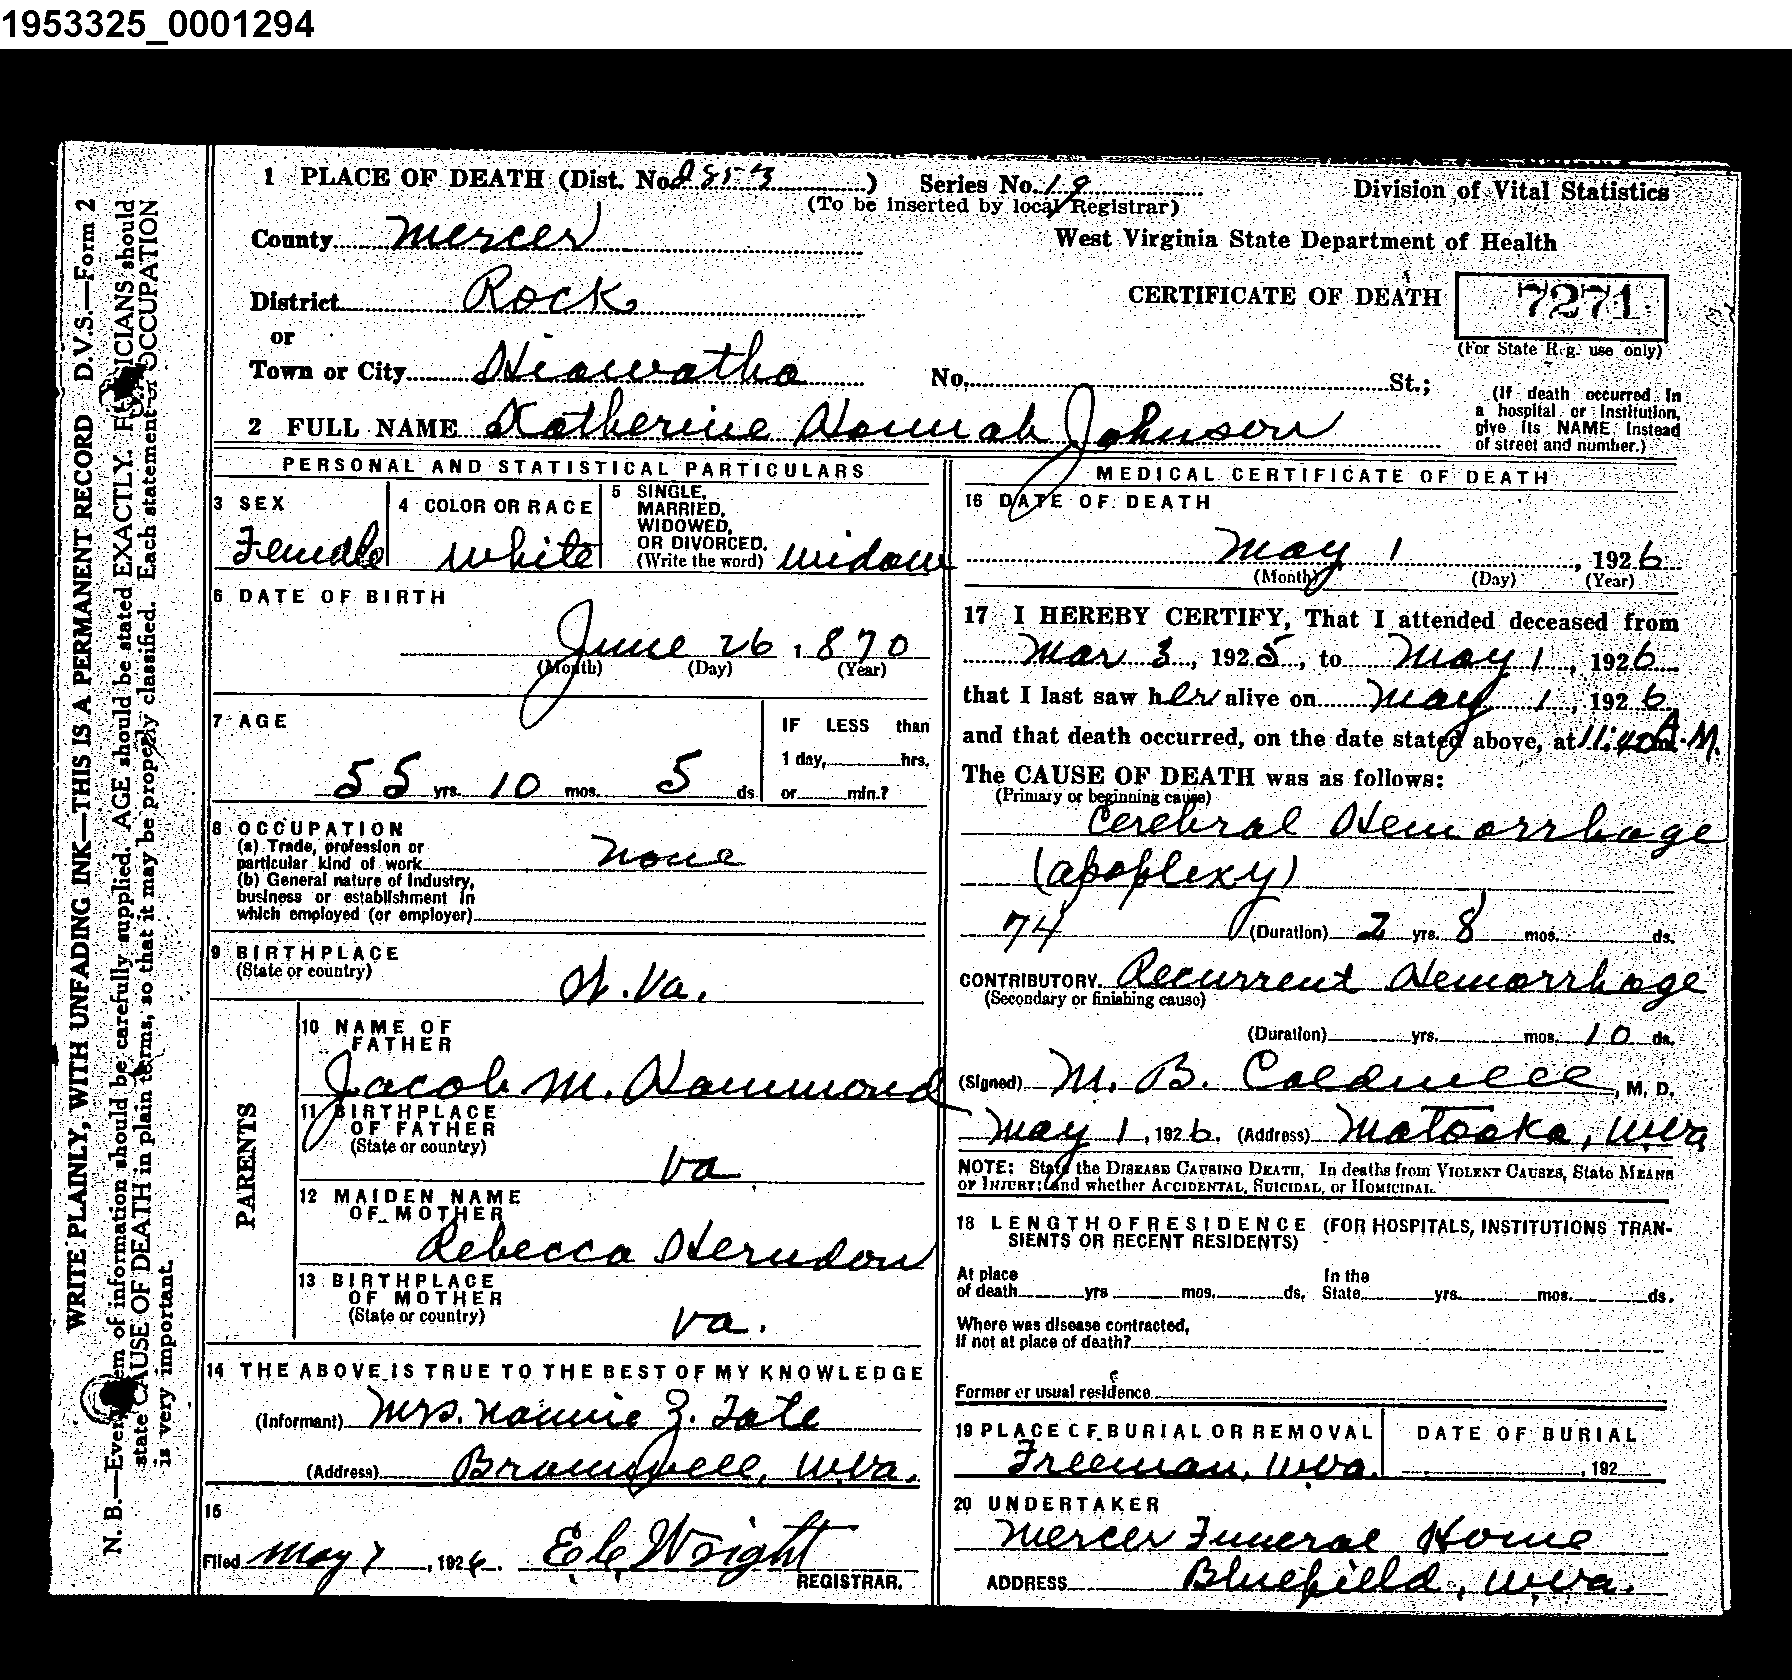 1953325_0001294
WRITE PLAINLY, WITH UNFADING INK—THIS IS A PERMANENT RECORD D.V.S.—Form 2
N. B.—Every item of information should be carefully supplied. AGE should be stated EXACTLY. PHYSICIANS should
state CAUSE OF DEATH in plain terms, so that it may be properly classified. Each statement of OCCUPATION
is very important.
1 PLACE OF DEATH (Dist. No. 2853 ) Series No. 19
(To be inserted by local Registrar)
Division of Vital Statistics
County Mercer
West Virginia State Department of Health
District Rock
CERTIFICATE OF DEATH 7271
or
(For State Reg. use only)
Town or City Hiawatha No. St.;
(If death occurred in
a hospital or institution,
give its NAME instead
of street and number.)
2 FULL NAME Katherine Hannah Johnson
PERSONAL AND STATISTICAL PARTICULARS
3 SEX
Female
4 COLOR OR RACE
White
5 SINGLE,
MARRIED,
WIDOWED,
OR DIVORCED.
(Write the word) widow
6 DATE OF BIRTH
June 26, 1870
(Month) (Day) (Year)
7 AGE
55 yrs. 10 mos. 5 ds
IF LESS than
1 day, hrs.
or min.?
8 OCCUPATION
(a) Trade, profession or
particular kind of work none
(b) General nature of Industry,
business or establishment in
which employed (or employer)
9 BIRTHPLACE
(State or country)
W. Va.
PARENTS
10 NAME OF
FATHER
Jacob M. Hammond
11 BIRTHPLACE
OF FATHER
(State or country)
Va
12 MAIDEN NAME
OF MOTHER
Rebecca Herndon
13 BIRTHPLACE
OF MOTHER
(State or country)
Va.
14 THE ABOVE IS TRUE TO THE BEST OF MY KNOWLEDGE
(Informant) Mrs. Nannie Z. Tate
(Address) Bramwell, W.Va.
15
Filed May 7, 1926. E C Wright
REGISTRAR.
MEDICAL CERTIFICATE OF DEATH
16 DATE OF DEATH
May 1, 1926
(Month) (Day) (Year)
17 I HEREBY CERTIFY, That I attended deceased from
Mar 3, 1925, to May 1, 1926
that I last saw her alive on May 1, 1926,
and that death occurred, on the date stated above, at 11:40 A.M.
The CAUSE OF DEATH was as follows:
(Primary or beginning cause)
Cerebral Hemorrhage
(apoplexy)
74 (Duration) 2 yrs. 8 mos. ds.
CONTRIBUTORY. Recurrent Hemorrhage
(Secondary or finishing cause)
(Duration) yrs. mos. 10 ds.
(Signed) M. B. Caldwell, M. D.
May 1, 1926. (Address) Matoaka, W Va
NOTE: State the DISEASE CAUSING DEATH, In deaths from VIOLENT CAUSES, State MEANS
OF INJURY; and whether ACCIDENTAL, SUICIDAL, or HOMICIDAL.
18 LENGTH OF RESIDENCE (FOR HOSPITALS, INSTITUTIONS TRAN-
SIENTS OR RECENT RESIDENTS)
At place
of death yrs mos. ds.
In the
State yrs. mos. ds.
Where was disease contracted,
if not at place of death?
Former or usual residence
19 PLACE OF BURIAL OR REMOVAL
Freeman, W Va.
DATE OF BURIAL
, 192
20 UNDERTAKER
Mercer Funeral Home
ADDRESS Bluefield, W. Va.